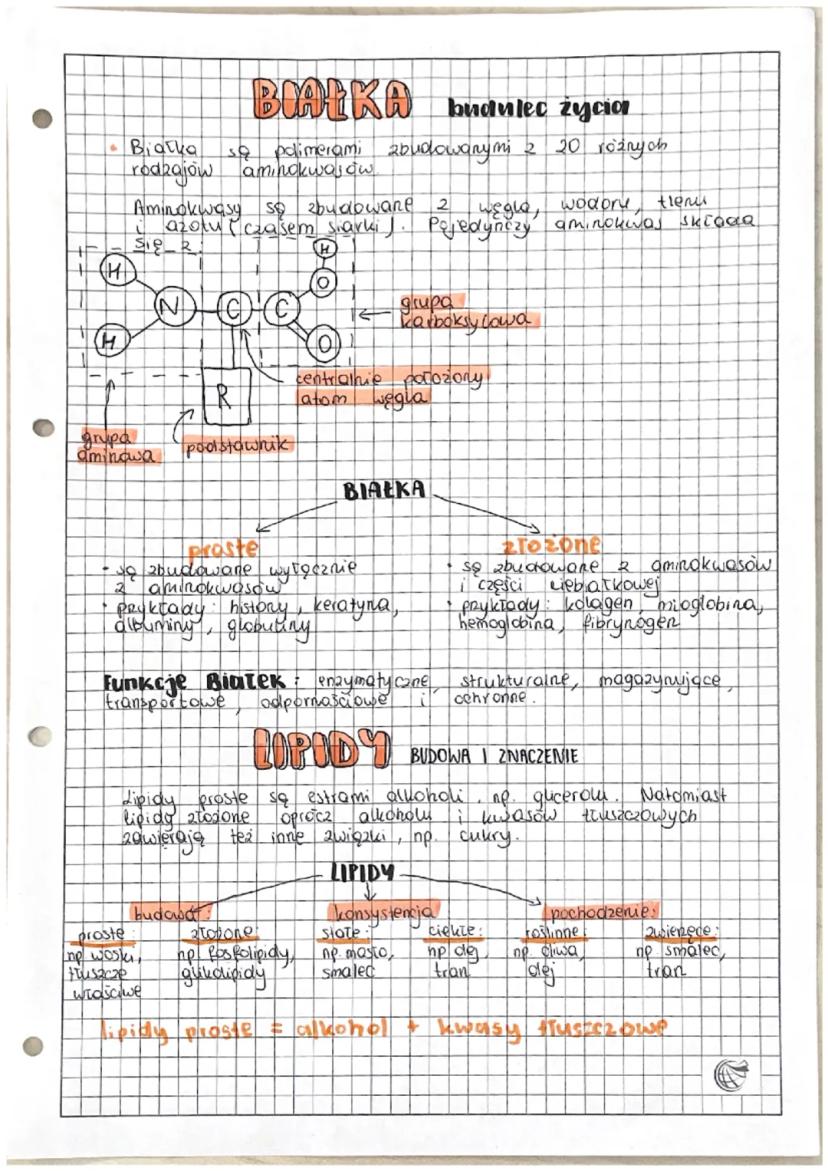 BIAŁKA budulec życia
• Białka są polimerami zbudowanymi z 20 różnych
rodzajów aminokwasów.
Aminokwasy są zbudowane z węgla, wodoru, tlenu
i azotu (czasem siarki). Pojedynczy aminokwas składa
się z:
H
H
O
N C C
H
O
R
grupa
karboksylowa
centralnie położony
atom węgla
grupa
aminowa
podstawnik
BIAŁKA
proste
• są zbudowane wyłącznie
z aminokwasów
• przykłady: histony, keratyna,
albuminy, globuliny
złożone
• są zbudowane z aminokwasów
i części niebiałkowej
• przykłady: kolagen, mioglobina,
hemoglobina, fibrynogen
Funkcje Białek: enzymatyczne, strukturalne, magazynujące,
transportowe, odpornościowe i ochronne.
LIPIDY BUDOWA I ZNACZENIE
Lipidy proste są estrami alkoholi, np. glicerolu. Natomiast
lipidy złożone oprócz alkoholu i kwasów tłuszczowych
zawierają też inne związki, np. cukry.
LIPIDY
budowa: konsystencja pochodzenie:
proste: złożone: stałe: ciekłe: roślinne: zwierzęce:
np woski, np. fosfolipidy, np. masło, np olej, np. oliwa, np smalec,
tłuszcze glikolipidy smalec tran olej tran
właściwe
lipidy proste = alkohol + kwasy tłuszczowe